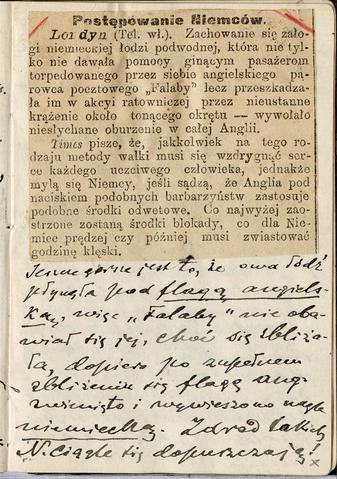 Postępowanie Niemców.
Londyn (Tel. wł.). Zachowanie się zało-
gi niemieckiej łodzi podwodnej, która nie tyl-
ko nie dawała pomocy ginącym pasażerom
torpedowanego przez siebie angielskiego pa-
rowca pocztowego „Falaby" lecz przeszkadza-
ła im w akcyi ratowniczej przez nieustanne
krążenie około tonącego okrętu — wywołało
niesłychane oburzenie w całej Anglii.
Times pisze, że, jakkolwiek na tego ro-
dzaju metody walki musi się wzdrygnąć ser-
ce każdego uczciwego człowieka, jednakże
mylą się Niemcy, jeśli sądzą, że Anglia pod
naciskiem podobnych barbarzyństw zastosuje
podobne środki odwetowe. Co najwyżej zao-
strzone zostaną środki blokady, co dla Nie-
miec prędzej czy później musi zwiastować
godzinę klęski.
Jeszcze gorsze jest to, że owa łódź
płynęła pod flagą angiels-
ką, więc „Falaby" nie oba-
wiał się jej, choć się zbliża-
ła, dopiero po zupełnem
zbliżeniu się flagę ang.
zwinięto i wywieszono nagle
niemiecką. Zdrad takich
N. ciągle się dopuszczają!